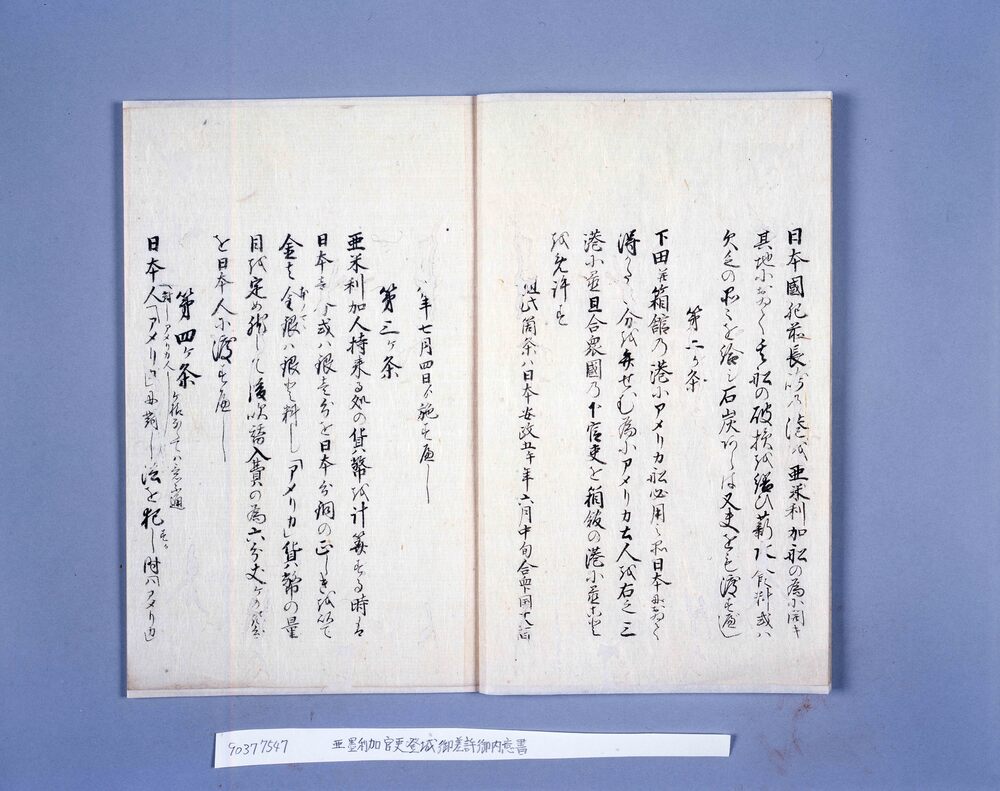 日本國肥前長崎の港を亜米利加船の為に開き
其地において其船の破損を繕ひ薪水食料或ハ
欠乏の品を給し石炭あらは又夫をも渡すへし
第二ヶ条
下田并箱館の港にアメリカ船必用之品日本において
得かたき分を弁せむ為にアメリカ士人を右之二
港に置且合衆國の下官吏を箱館の港に置こと
を免許す
但此箇条ハ日本安政五午年六月中旬合衆国千八百
年七月四日より施すへし
第三ヶ条
亜米利加人持来る処の貨幣を計算する時は
日本壱分或ハ銀壱分を日本分銅の正しきを以て
金は金銀ハ銀と秤し「アメリカ」貨幣の量
目を定め然して後吹替入費の為六分丈ケの余分
を日本人に渡すへし
第四ヶ条
日本人「アメリカ」人に対し法を犯す時ハ「アメリカ」
90377547 亜墨利加官吏登城御差許御内意書